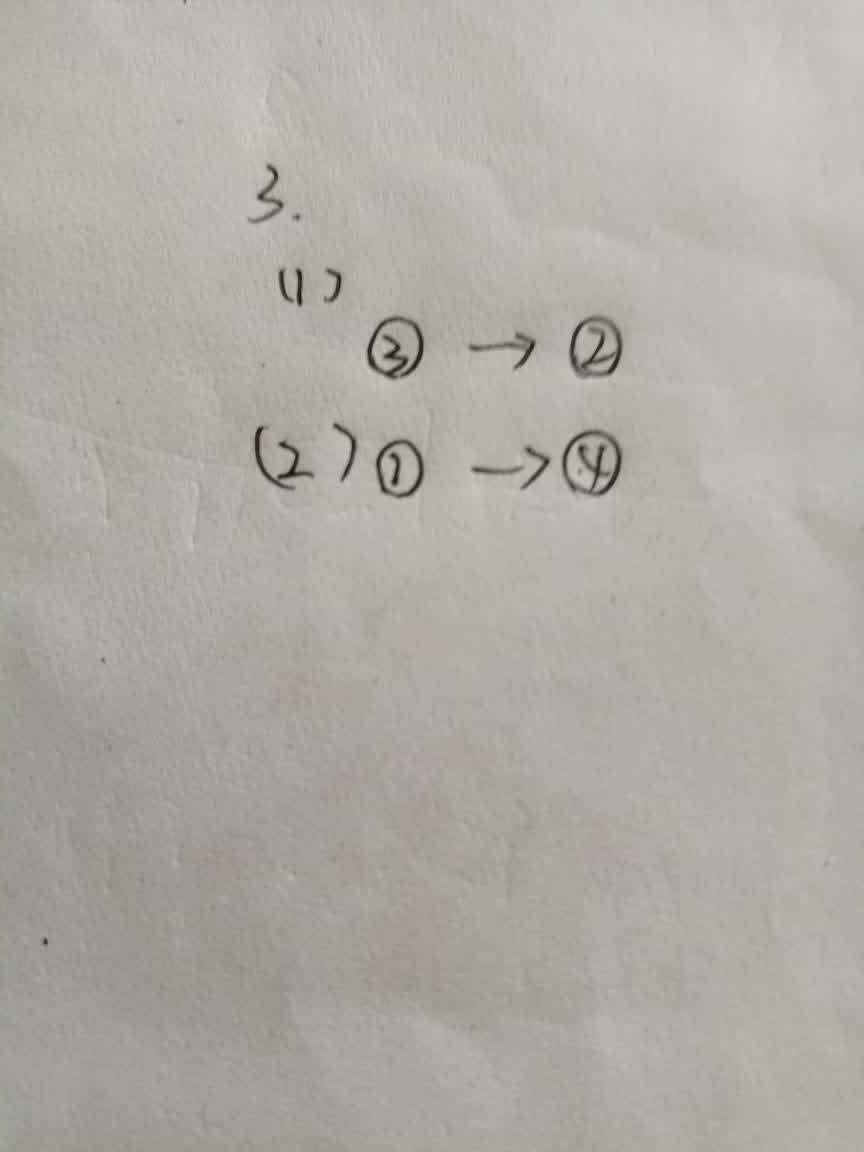 3.
(1)
③ → ②
(2) ① → ④